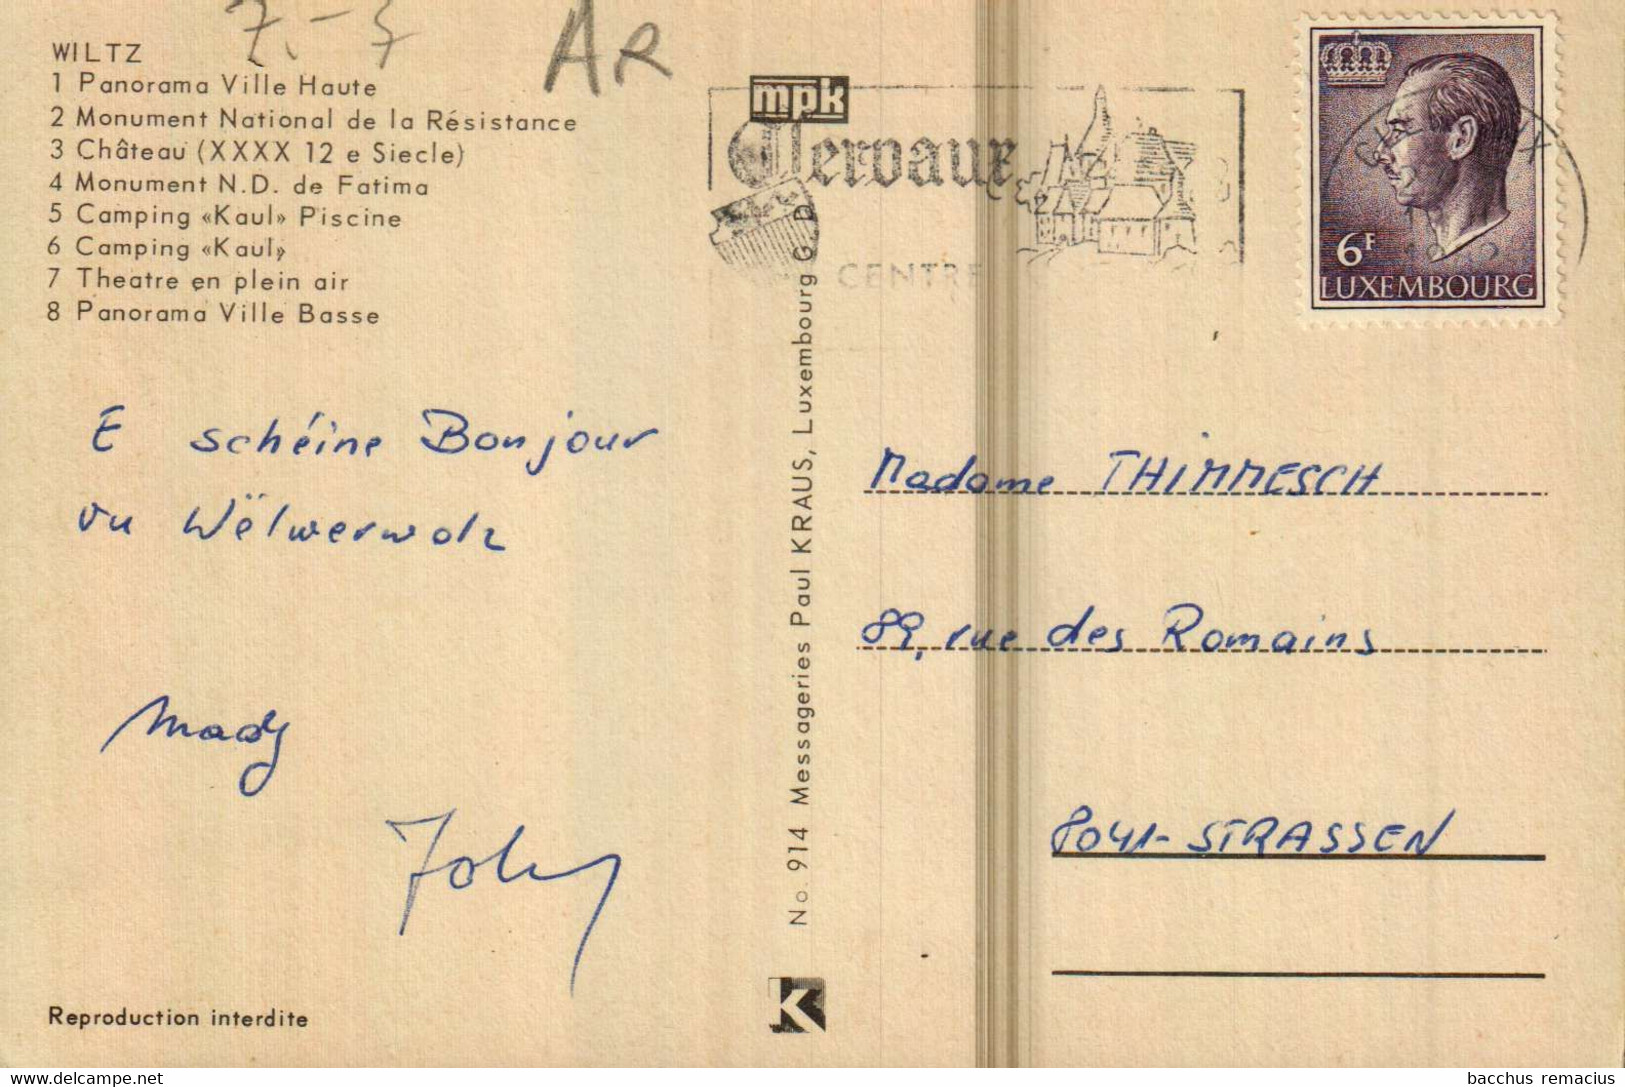 7.-7
AR
WILTZ
1 Panorama Ville Haute
2 Monument National de la Résistance
3 Château (XXXX 12 e Siecle)
4 Monument N.D. de Fatima
5 Camping «Kaul» Piscine
6 Camping «Kaul»
7 Theatre en plein air
8 Panorama Ville Basse
E schéine Bonjour
vu Wëlwerwolz
Mady
Reproduction interdite
No. 914 Messageries Paul KRAUS, Luxembourg G. D.
mpk
Clervaux
CENTRE
6F
LUXEMBOURG
Madame THIMMESCH
89, rue des Romains
8041-STRASSEN
K
delcampe.net
bacchus remacius